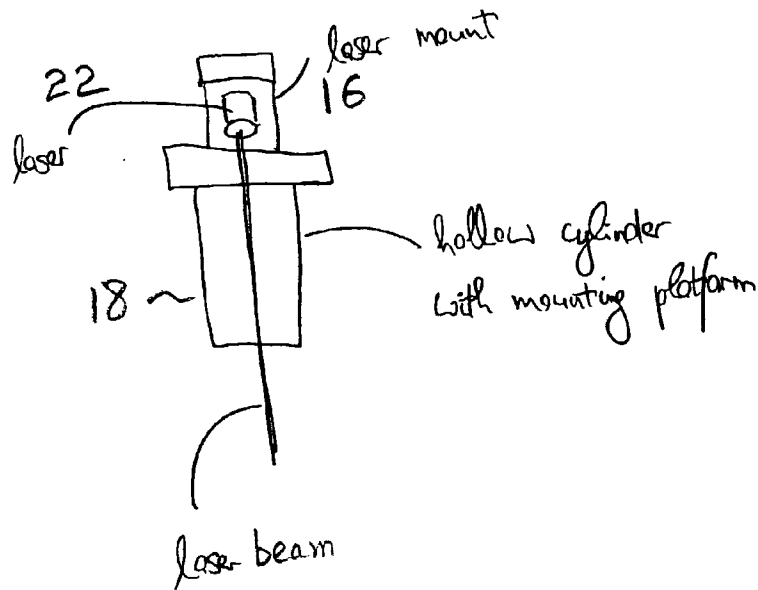 laser mount
22
16
laser
hollow cylinder
with mounting platform
18
laser beam